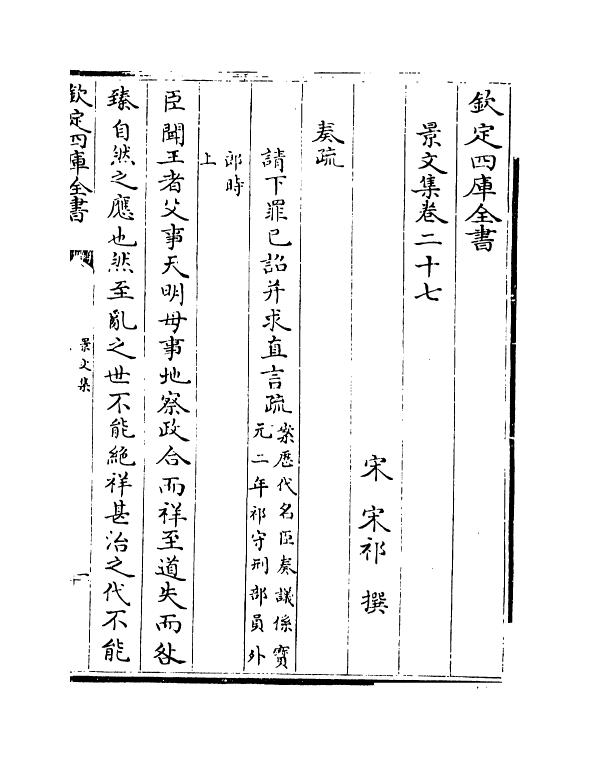 欽定四庫全書
景文集卷二十七
宋 宋祁 撰
奏疏
請下罪己詔并求直言疏
案歷代名臣奏議係寳
元二年祁守刑部員外
郎時
上
臣聞王者父事天明母事地察政合而祥至道失而咎
臻自然之應也然至亂之世不能絶祥甚治之代不能
欽定四庫全書
景文集
一